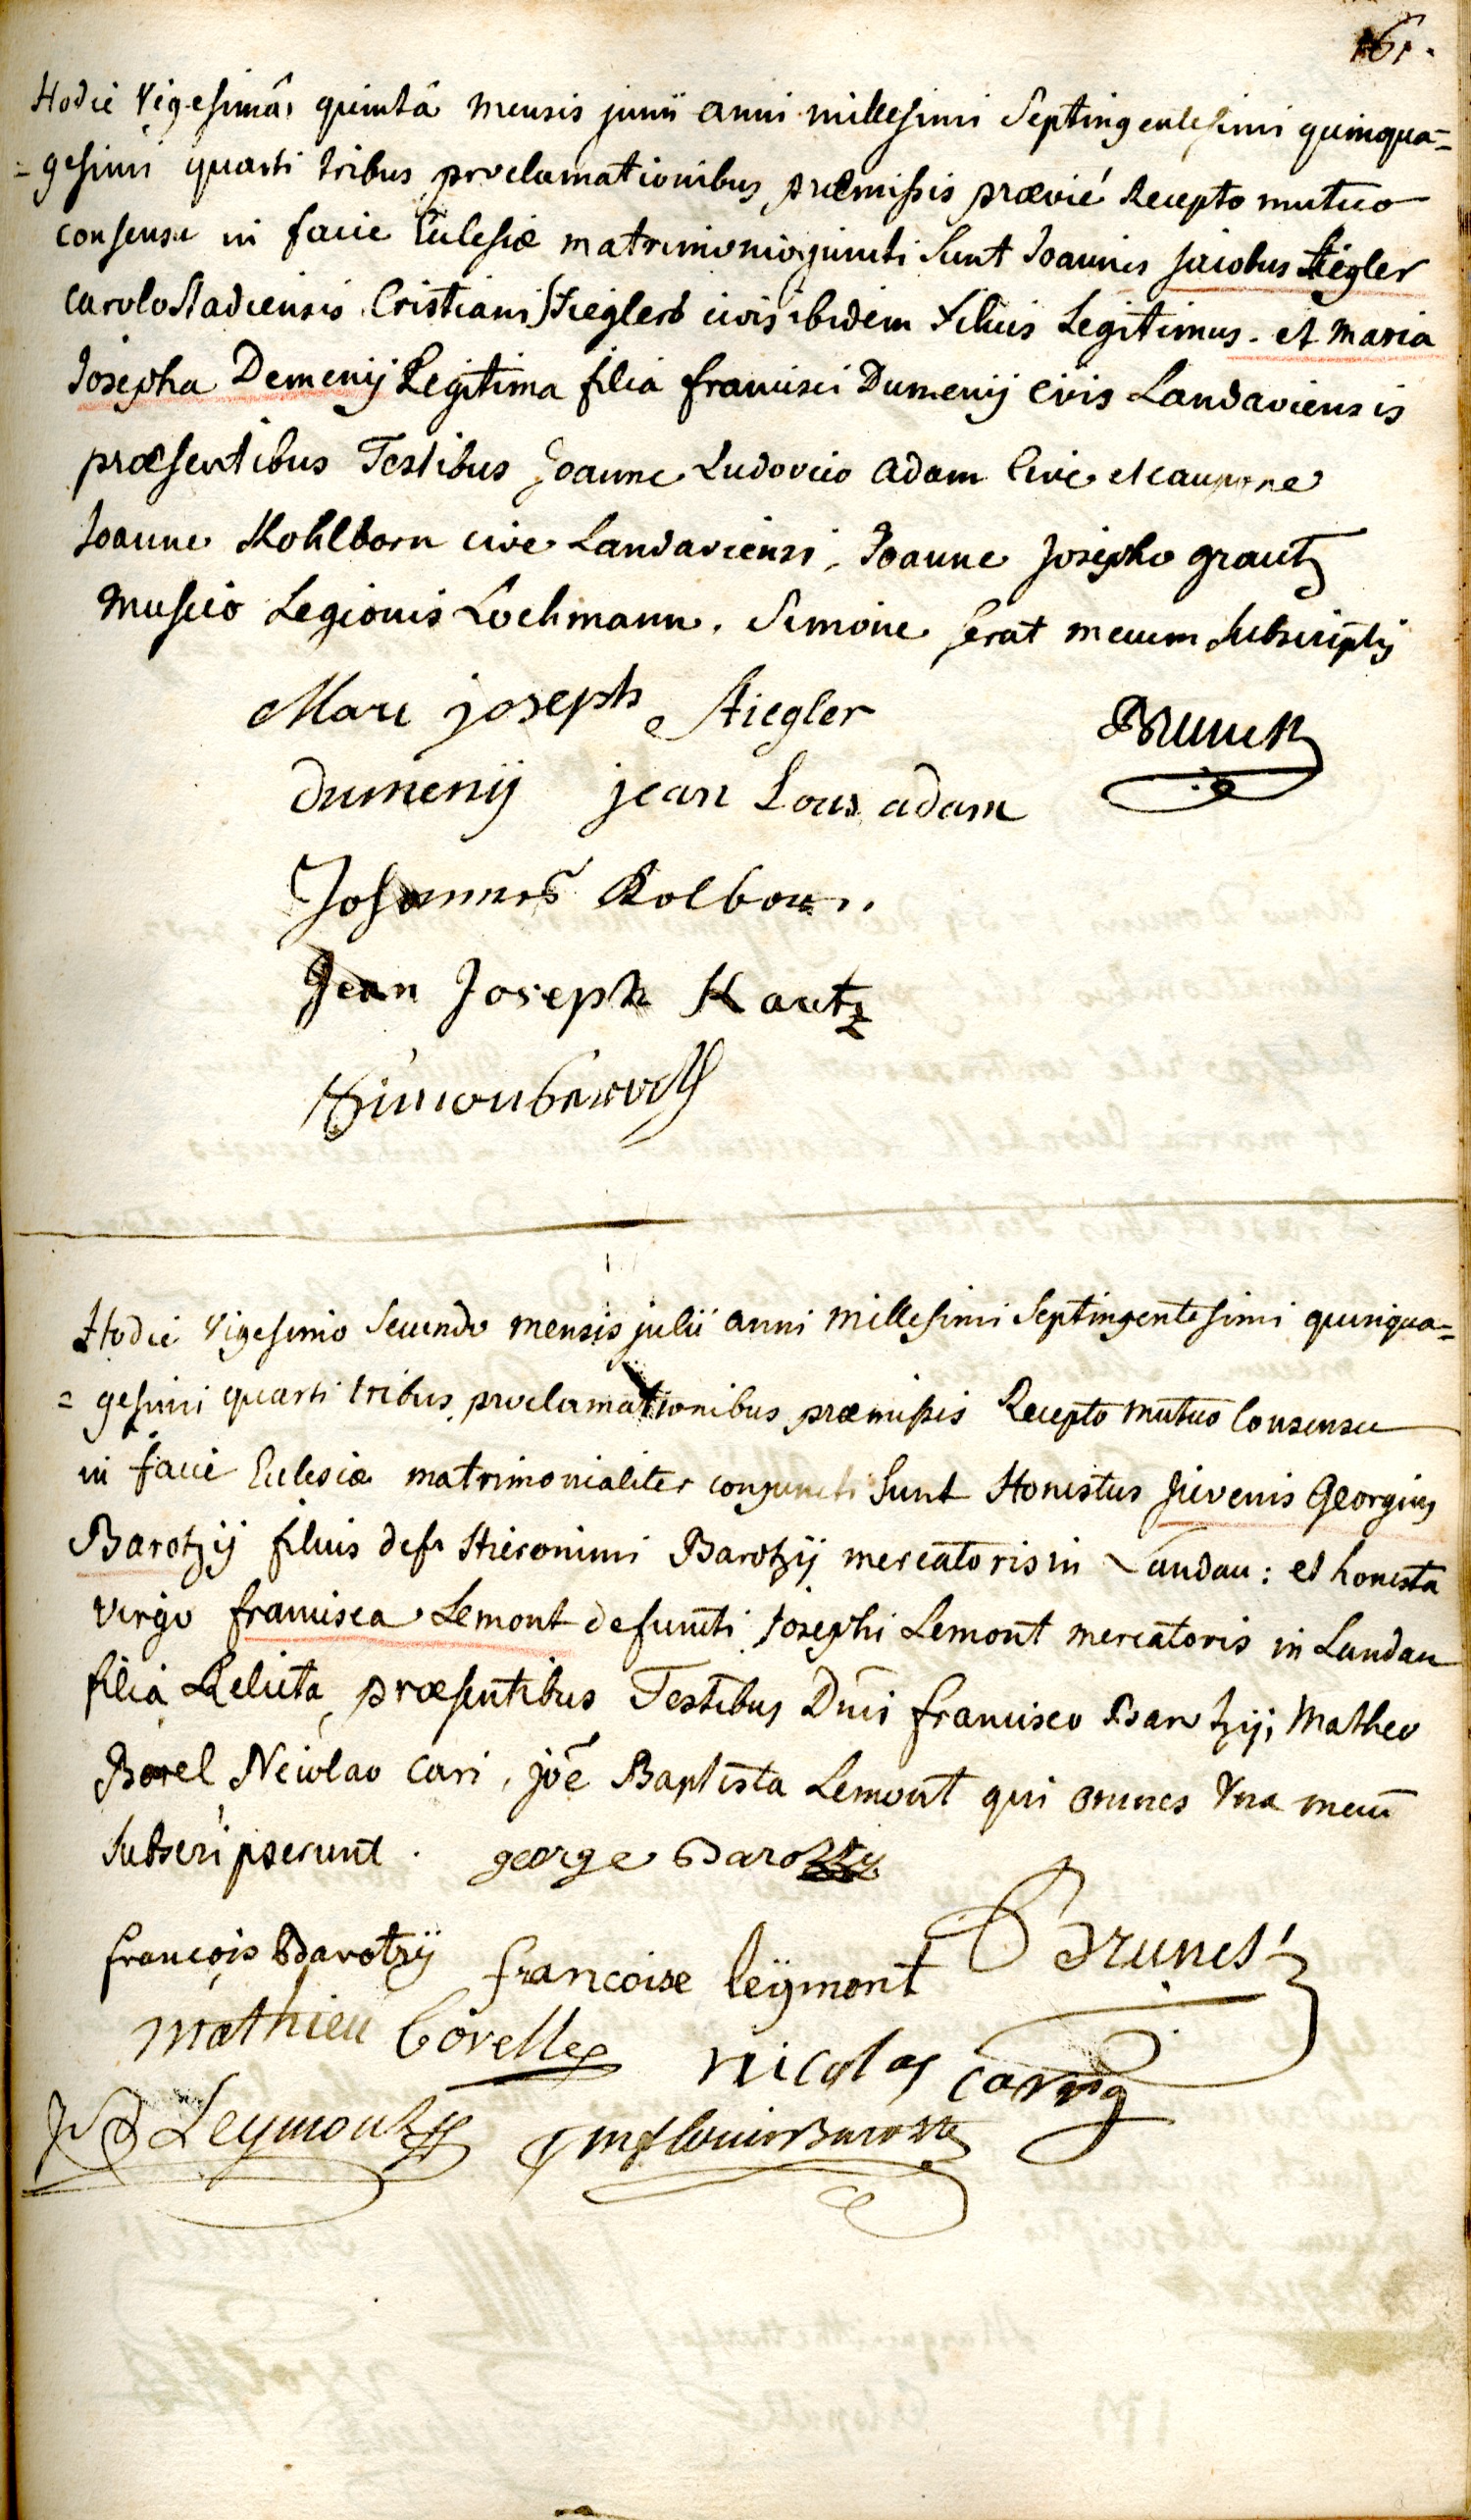 161.
Hodie vigesimâ quintâ mensis junii anni millesimi septingentesimi quinqua=
=gesimi quarti tribus proclamationibus præmissis prævie recepto mutuo
consensu in facie Eclesiæ matrimonio juncti sunt Joannes jacobus Stiegler
carolostadiensis Cristiani Stiegler civis ibidem filius Legitimus. et maria
Josepha Demenij Legitima filia francisci Dumenij civis Landaviensis
præsentibus Testibus Joanne Ludovico adam Cive et caupone
Joanne Kohlborn cive Landaviensi, Joanne Josepho grautz
musico Legionis Lochmann. Simone serat mecum subscriptis
Marc joseph Stiegler Brunck
dumenij jean Louis adam
Johannes Kolborn.
Jean Joseph Kautz
Simon
Hodie vigesimo secundo mensis julii anni millesimi septingentesimi quinqua=
=gesimi quarti tribus proclamationibus præmissis Recepto mutuo Consensu
in facie Eclesiæ matrimonialiter conjuncti sunt Honestus juvenis Georgius
Barotzij filius def. Hieronimi Barotzij mercatoris in Landau: et honesta
virgo francisca Lemont defuncti Josephi Lemont mercatoris in Landau
filia Relicta, præsentibus Testibus Dnis francisco Barotzij, Matheo
Borel Nicolao Cari, jōe Baptista Lemont qui omnes Una mecū
subscripserunt. george Barotzy
françois Barotzij francoise leÿmont Brunck
mathieu Borelle nicolas
Leymont